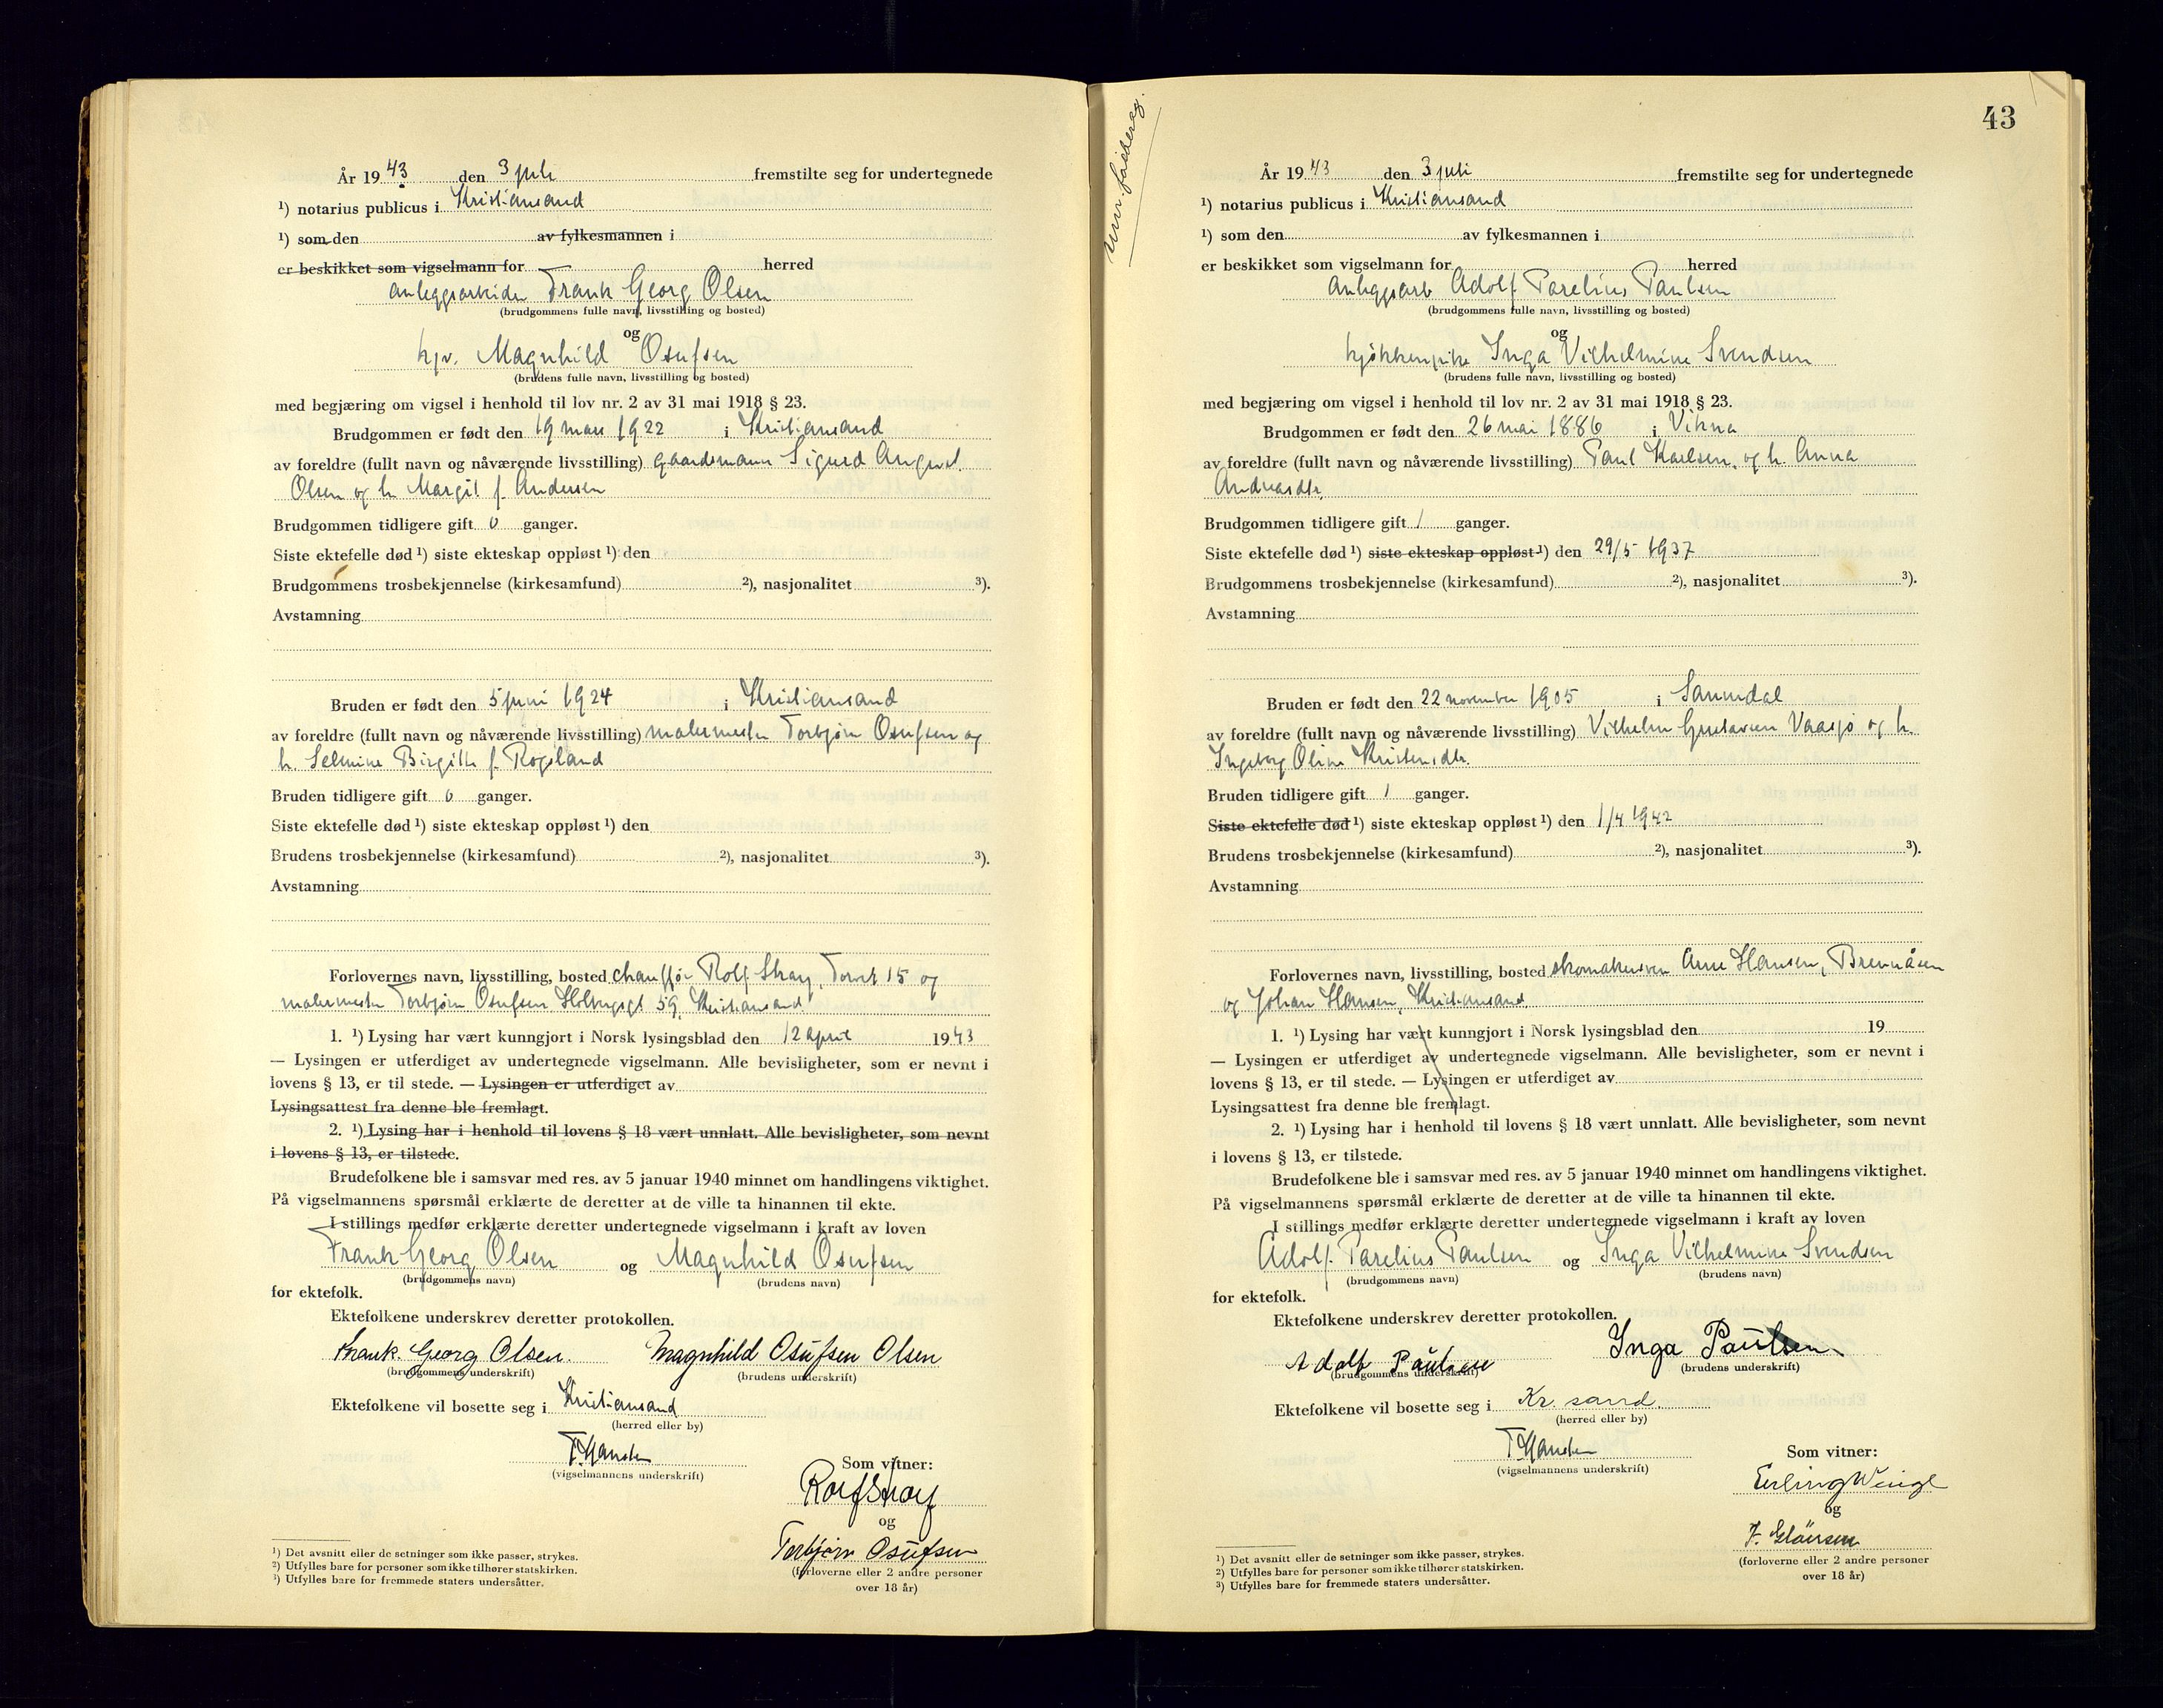 År 1943 den 3 juli fremstilte seg for undertegnede
¹) notarius publicus i Kristiansand
¹) som den av fylkesmannen i
er beskikket som vigselmann for herred
anleggsarbeider Frank Georg Olsen
(brudgommens fulle navn, livsstilling og bosted)
og
hjv. Magnhild Osufsen
(brudens fulle navn, livsstilling og bosted)
med begjæring om vigsel i henhold til lov nr. 2 av 31 mai 1918 § 23.
Brudgommen er født den 19 mars 1922 i Kristiansand
av foreldre (fullt navn og nåværende livsstilling) gaardsmann Sigurd August
Olsen og h. Margit f. Andersen
Brudgommen tidligere gift 0 ganger.
Siste ektefelle død ¹) siste ekteskap oppløst ¹) den
Brudgommens trosbekjennelse (kirkesamfund) ²), nasjonalitet ³).
Avstamning
Bruden er født den 5 juni 1924 i Kristiansand
av foreldre (fullt navn og nåværende livsstilling) malermester Torbjørn Osufsen og
h. Selmine Birgitte f. Rogsland
Bruden tidligere gift 0 ganger.
Siste ektefelle død ¹) siste ekteskap oppløst ¹) den
Brudens trosbekjennelse (kirkesamfund) ²), nasjonalitet ³).
Avstamning
Forlovernes navn, livsstilling, bosted chauffør Rolf Stray, Torvet 15 og
malermester Torbjørn Osufsen Holbergsgt 59, Kristiansand
1. ¹) Lysing har vært kunngjort i Norsk lysingsblad den 12 april 1943
— Lysingen er utferdiget av undertegnede vigselmann. Alle bevisligheter, som er nevnt i
lovens § 13, er til stede. — Lysingen er utferdiget av
Lysingsattest fra denne ble fremlagt.
2. ¹) Lysing har i henhold til lovens § 18 vært unnlatt. Alle bevisligheter, som nevnt
i lovens § 13, er tilstede.
Brudefolkene ble i samsvar med res. av 5 januar 1940 minnet om handlingens viktighet.
På vigselmannens spørsmål erklærte de deretter at de ville ta hinannen til ekte.
I stillings medfør erklærte deretter undertegnede vigselmann i kraft av loven
Frank Georg Olsen og Magnhild Osufsen
(brudgommens navn) (brudens navn)
for ektefolk.
Ektefolkene underskrev deretter protokollen.
Frank. Georg Olsen. Magnhild Osufsen Olsen
(brudgommens underskrift) (brudens underskrift)
Ektefolkene vil bosette seg i Kristiansand
(herred eller by)
(vigselmannens underskrift)
Som vitner:
Rolf Stray
og
Torbjørn Osufsen
(forloverne eller 2 andre personer
over 18 år)
¹) Det avsnitt eller de setninger som ikke passer, strykes.
²) Utfylles bare for personer som ikke tilhører statskirken.
³) Utfylles bare for fremmede staters undersåtter.
43
År 1943 den 3 juli fremstilte seg for undertegnede
¹) notarius publicus i Kristiansand
¹) som den av fylkesmannen i
er beskikket som vigselmann for herred
Anleggsarb Adolf Parelius Paulsen
(brudgommens fulle navn, livsstilling og bosted)
og
kjøkkenpike Inga Vilhelmine Svendsen
(brudens fulle navn, livsstilling og bosted)
med begjæring om vigsel i henhold til lov nr. 2 av 31 mai 1918 § 23.
Brudgommen er født den 26 mai 1886 i Vikna
av foreldre (fullt navn og nåværende livsstilling) Paul Karlsen. og h. Anna
Andreasdtr.
Brudgommen tidligere gift 1 ganger.
Siste ektefelle død ¹) siste ekteskap oppløst ¹) den 29/5 1937
Brudgommens trosbekjennelse (kirkesamfund) ²), nasjonalitet ³).
Avstamning
Bruden er født den 22 november 1905 i
av foreldre (fullt navn og nåværende livsstilling) Vilhelm Gustavsen Vaasjø og h.
Ingeborg Oline Kristensdtr.
Bruden tidligere gift 1 ganger.
Siste ektefelle død ¹) siste ekteskap oppløst ¹) den 1/4 1942
Brudens trosbekjennelse (kirkesamfund) ²), nasjonalitet ³).
Avstamning
Forlovernes navn, livsstilling, bosted skomakersven Arne Hansen, Brennåsen
og Johan Hansen, Kristiansand
1. ¹) Lysing har vært kunngjort i Norsk lysingsblad den 19
— Lysingen er utferdiget av undertegnede vigselmann. Alle bevisligheter, som er nevnt i
lovens § 13, er til stede. — Lysingen er utferdiget av
Lysingsattest fra denne ble fremlagt.
2. ¹) Lysing har i henhold til lovens § 18 vært unnlatt. Alle bevisligheter, som nevnt
i lovens § 13, er tilstede.
Brudefolkene ble i samsvar med res. av 5 januar 1940 minnet om handlingens viktighet.
På vigselmannens spørsmål erklærte de deretter at de ville ta hinannen til ekte.
I stillings medfør erklærte deretter undertegnede vigselmann i kraft av loven
Adolf Parelius Paulsen og Inga Vilhelmine Svendsen
(brudgommens navn) (brudens navn)
for ektefolk.
Ektefolkene underskrev deretter protokollen.
Adolf Paulsen Inga Paulsen
(brudgommens underskrift) (brudens underskrift)
Ektefolkene vil bosette seg i Kr. sand
(herred eller by)
(vigselmannens underskrift)
Som vitner:
Erling
og
(forloverne eller 2 andre personer
over 18 år)
¹) Det avsnitt eller de setninger som ikke passer, strykes.
²) Utfylles bare for personer som ikke tilhører statskirken.
³) Utfylles bare for fremmede staters undersåtter.